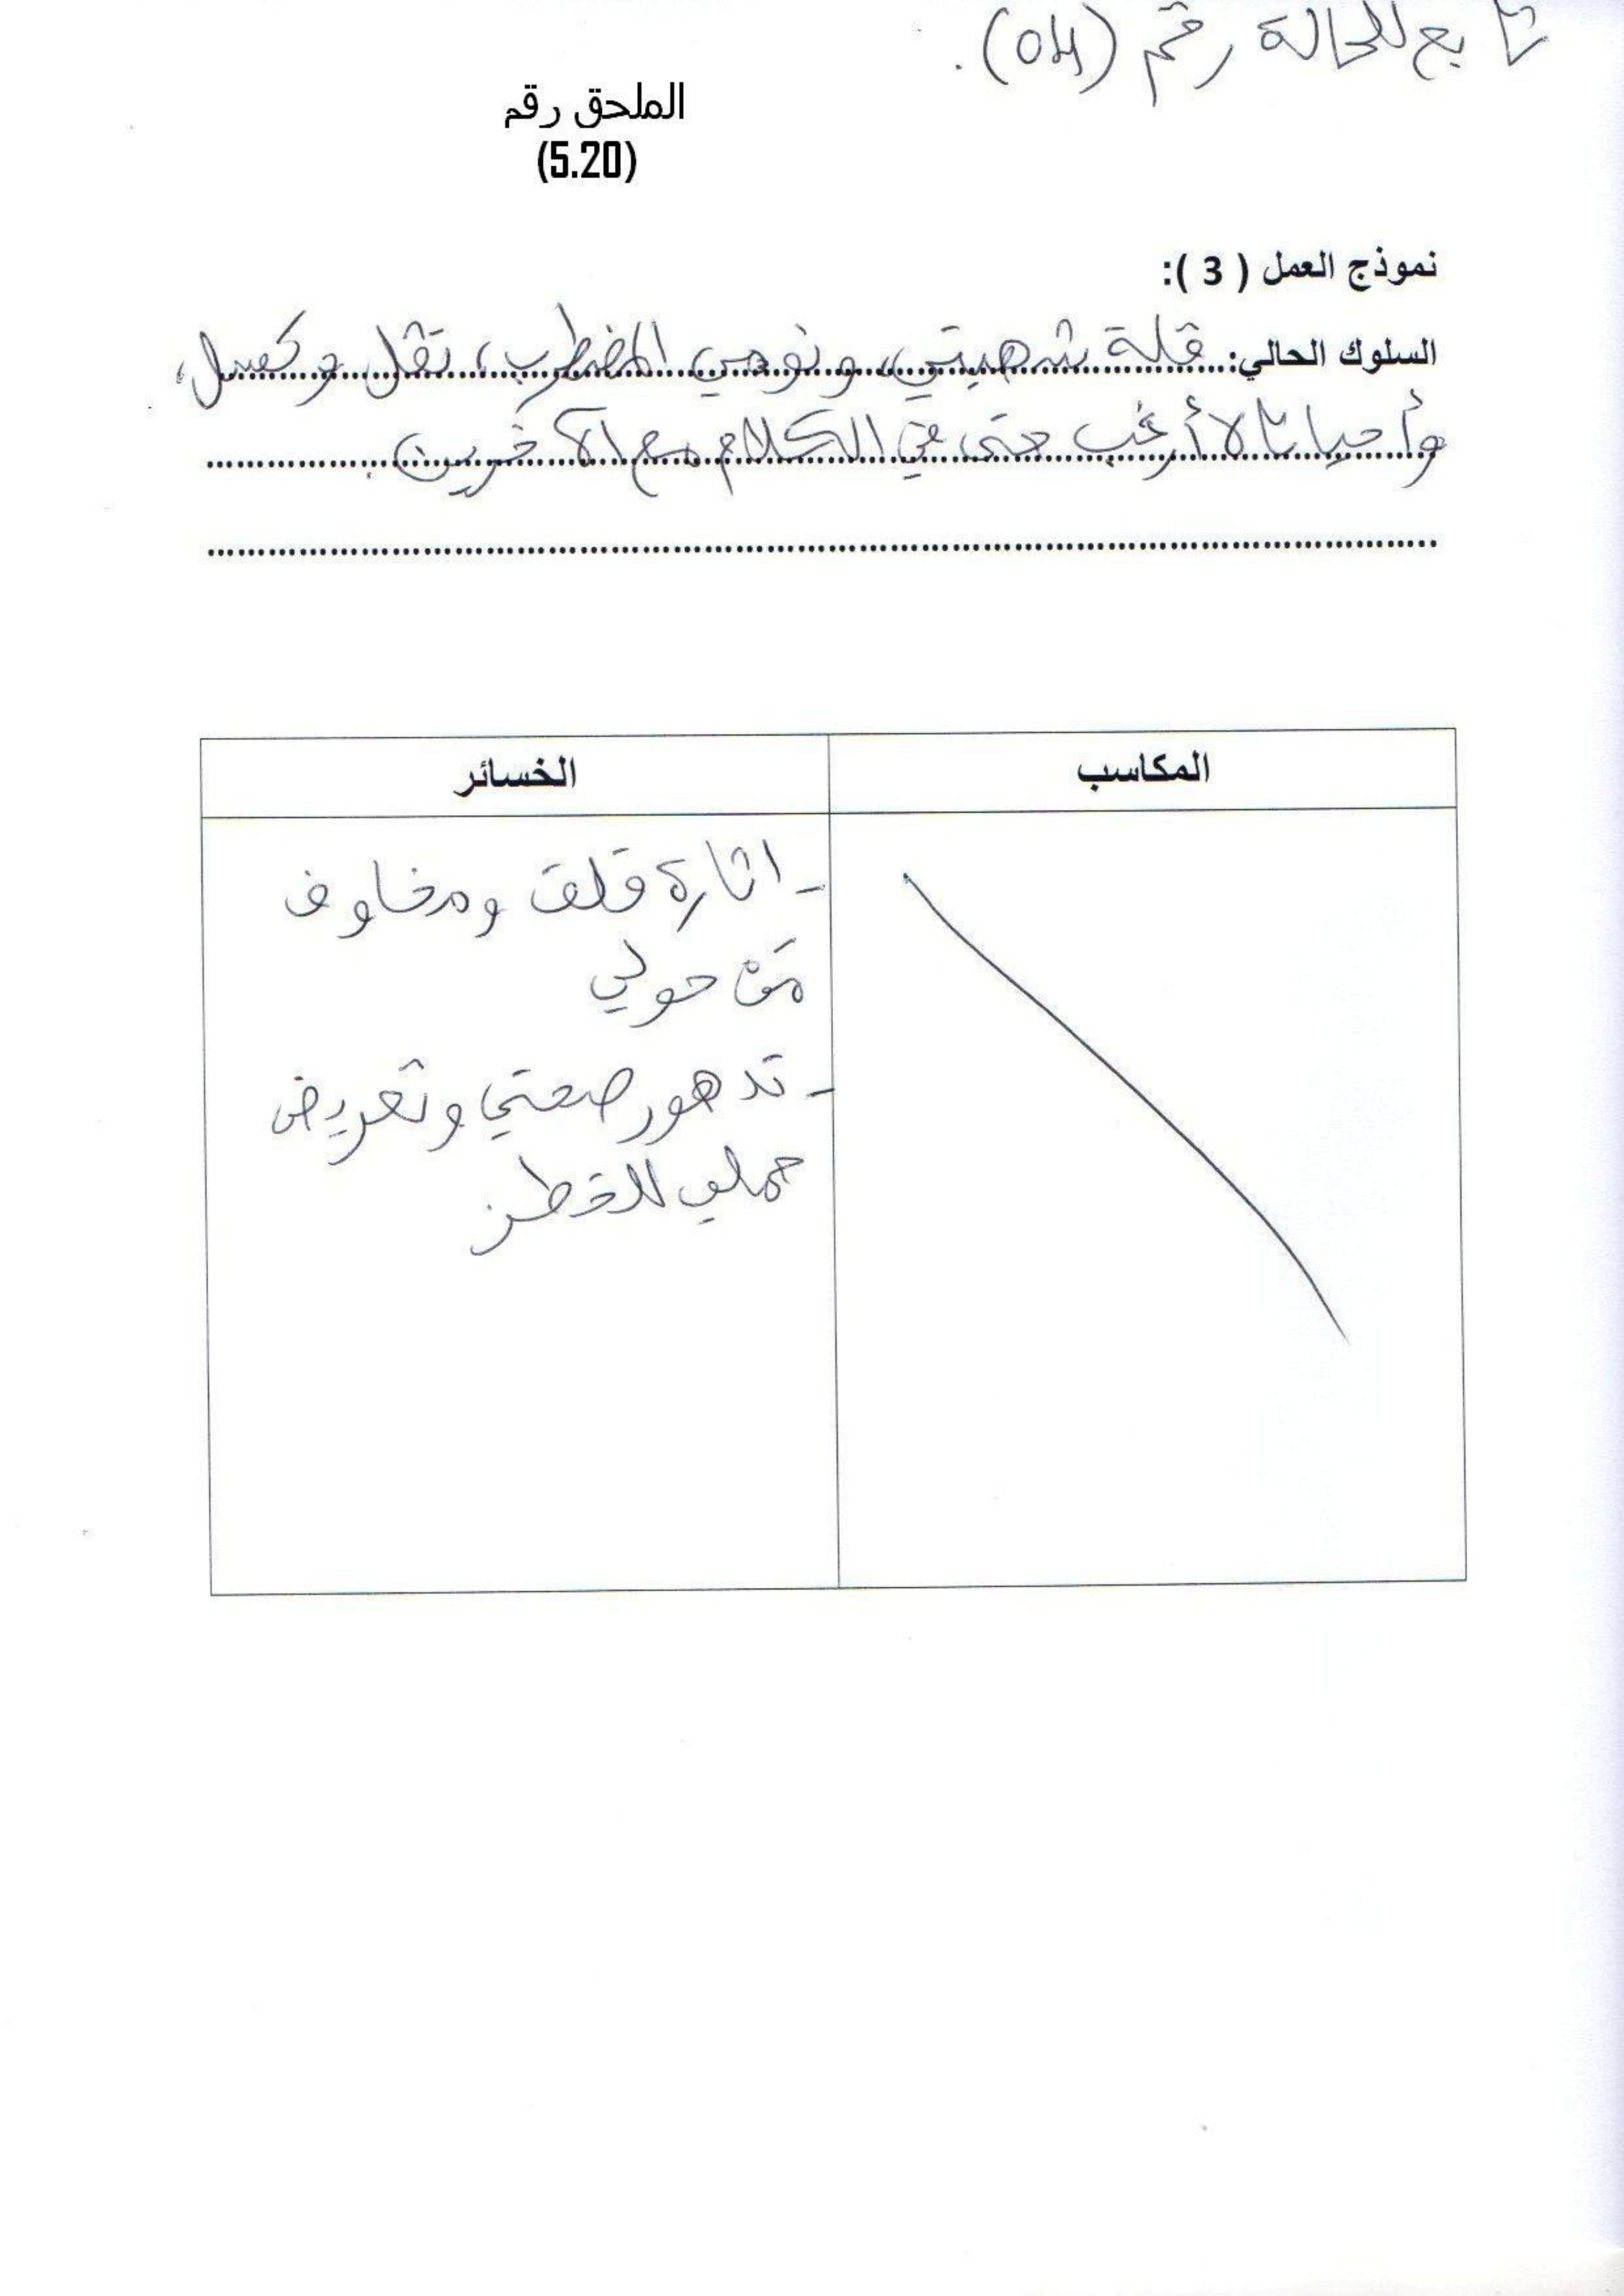 تابع للحالة رقم (04).
الملحق رقم
(5.20)
نموذج العمل ( 3 ):
السلوك الحالي: قلة شهيتي، ونومي المضطرب، ثقل وكسل،
وأحيانا لا أرغب حتى في الكلام مع الآخرين.
المكاسب
الخسائر
- اثارة قلق ومخاوف
مَن حولي
- تدهور صحتي وتعريض
حملي للخطر